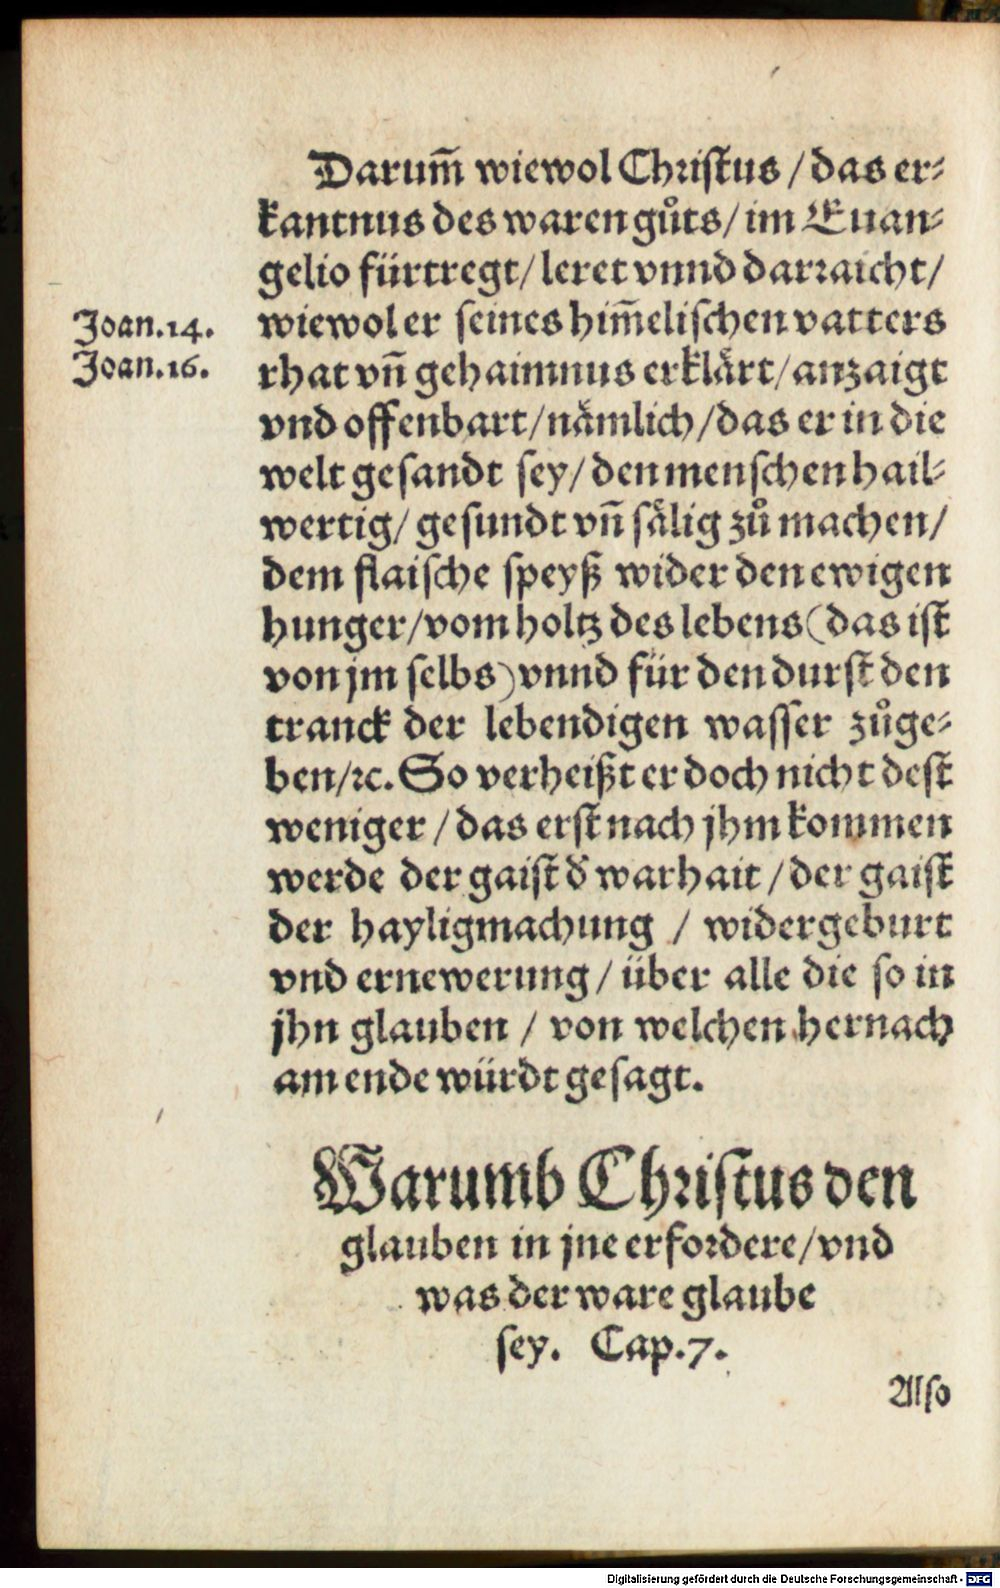 Darum̃ wiewol Christus / das er⸗
kantnus des waren gůts / im Euan⸗
gelio fürtregt / leret vnnd darraicht /
Joan.14. wiewol er seines him̃elischen vatters
Joan.16. rhat vñ gehaimnus erklärt / anzaigt
vnd offenbart / nämlich / das er in die
welt gesandt sey / den menschen hail⸗
wertig / gesundt vñ sälig zů machen /
dem flaische speyß wider den ewigen
hunger / vom holtz des lebens (das ist
von jm selbs) vnnd für den durst den
tranck der lebendigen wasser zůge⸗
ben / ꝛc. So verheißt er doch nicht dest
weniger / das erst nach jhm kommen
werde der gaist d̕ warhait / der gaist
der hayligmachung / widergeburt
vnd ernewerung / über alle die so in
jhn glauben / von welchen hernach
am ende würdt gesagt.
Warumb Christus den
glauben in jne erfordere / vnd
was der ware glaube
sey. Cap.7.
Also
Digitalisierung gefördert durch die Deutsche Forschungsgemeinschaft - DFG